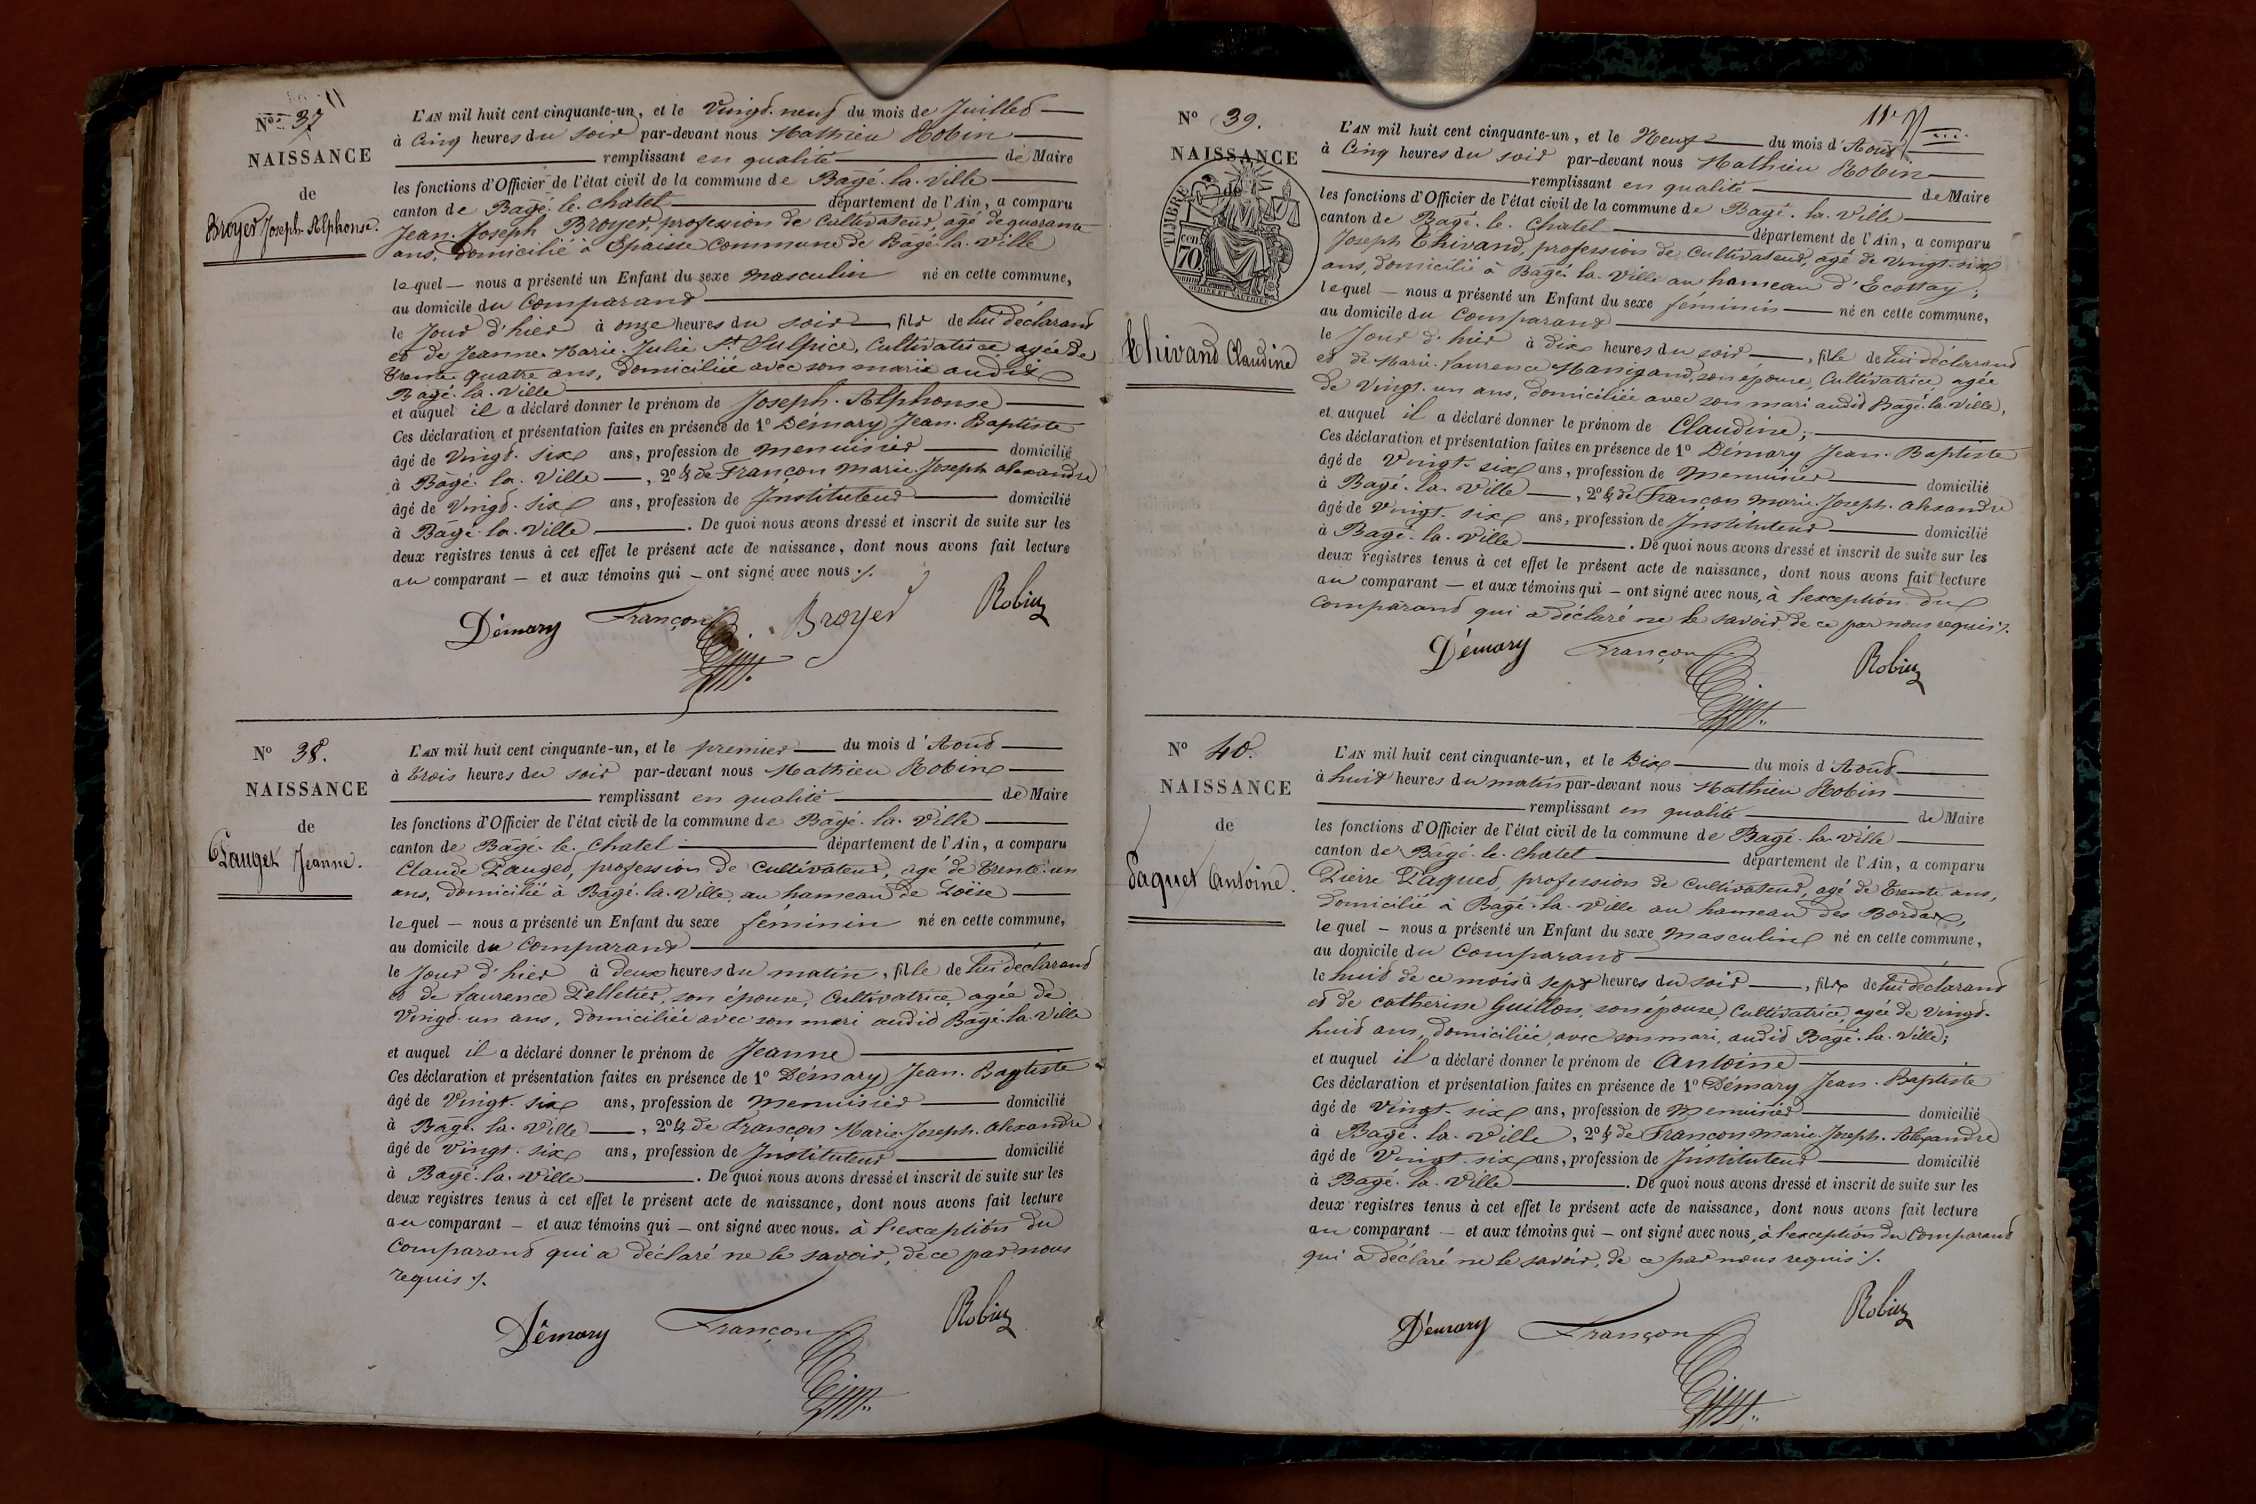 N° 37
NAISSANCE
de
Broyer Joseph-Alphonse.
L'AN mil huit cent cinquante-un, et le Vingt-neuf du mois de Juillet
à Cinq heures du soir par-devant nous Mathieu Robin
remplissant en qualité de Maire
les fonctions d'Officier de l'état civil de la commune de Bagé-la-Ville
canton de Bagé-le-Chatel département de l'Ain, a comparu
Jean-Joseph Broyer, profession de Cultivateur, agé de quarante
ans, Domicilié à Epaisse Commune de Bagé-la-Ville
lequel nous a présenté un Enfant du sexe masculin né en cette commune,
au domicile du Comparant
le Jour d'hier à onze heures du soir fils de lui déclarant
et de Jeanne-Marie-Julie St Sulpice, Cultivatrice agée de
trente quatre ans, domiciliée avec son marie audit
Bagé-la-Ville
et auquel il a déclaré donner le prénom de Joseph-Alphonse
Ces déclaration et présentation faites en présence de 1° Démary Jean-Baptiste
âgé de Vingt-six ans, profession de menuisier domicilié
à Bagé-la-Ville, 2° & de Françon Marie-Joseph Alexandre
âgé de Vingt-six ans, profession de Instituteur domicilié
à Bagé-la-Ville. De quoi nous avons dressé et inscrit de suite sur les
deux registres tenus à cet effet le présent acte de naissance, dont nous avons fait lecture
au comparant et aux témoins qui ont signé avec nous ./.
Démary Françon Broyer Robin
N° 38.
NAISSANCE
de
Pauget Jeanne.
L'AN mil huit cent cinquante-un, et le premier du mois d'Août
à trois heures du soir par-devant nous Mathieu Robin
remplissant en qualité de Maire
les fonctions d'Officier de l'état civil de la commune de Bagé-la-Ville
canton de Bagé-le-Chatel département de l'Ain, a comparu
Claude Pauget, profession de Cultivateur, agé de trente-un
ans, domicilié à Bagé-la-Ville, au hameau de Loëse
lequel nous a présenté un Enfant du sexe féminin né en cette commune,
au domicile du Comparant
le Jour d'hier à deux heures du matin, fille de lui déclarant
et de Laurence Pelletier, son épouse, Cultivatrice, agée de
Vingt-un ans, domiciliée avec son mari audit Bagé-la-Ville
et auquel il a déclaré donner le prénom de Jeanne
Ces déclaration et présentation faites en présence de 1° Démary Jean-Baptiste
âgé de Vingt-six ans, profession de menuisier domicilié
à Bagé-la-Ville, 2° & de Françon Marie-Joseph-Alexandre
âgé de Vingt-six ans, profession de Instituteur domicilié
à Bagé-la-Ville. De quoi nous avons dressé et inscrit de suite sur les
deux registres tenus à cet effet le présent acte de naissance, dont nous avons fait lecture
au comparant et aux témoins qui ont signé avec nous. à l'exception du
Comparant qui a déclaré ne le savoir, de ce par nous
requis ./.
Démary Françon Robin
11e
N° 39.
NAISSANCE
de
TIMBRE
70 cen
Thivand Claudine
L'AN mil huit cent cinquante-un, et le Neuf du mois d'Août
à Cinq heures du soir par-devant nous Mathieu Robin
remplissant en qualité de Maire
les fonctions d'Officier de l'état civil de la commune de Bagé-la-Ville
canton de Bagé-le-Chatel département de l'Ain, a comparu
Joseph Thivand, profession de Cultivateur, agé de Vingt-six
ans, domicilié à Bagé-la-Ville au hameau d'Ecottay;
lequel nous a présenté un Enfant du sexe féminin né en cette commune,
au domicile du Comparant
le Jour d'hier à dix heures du soir, fille de lui déclarant
et de Marie-Laurence Manigand, son épouse, Cultivatrice agée
de Vingt-un ans, domiciliée avec son mari audit Bagé-la-Ville,
et auquel il a déclaré donner le prénom de Claudine;
Ces déclaration et présentation faites en présence de 1° Démary Jean-Baptiste
âgé de Vingt-six ans, profession de menuisier domicilié
à Bagé-la-Ville, 2° & de Françon Marie-Joseph-Alexandre
âgé de Vingt-six ans, profession de Instituteur domicilié
à Bagé-la-Ville. De quoi nous avons dressé et inscrit de suite sur les
deux registres tenus à cet effet le présent acte de naissance, dont nous avons fait lecture
au comparant et aux témoins qui ont signé avec nous, à l'exception du
Comparant qui a déclaré ne le savoir de ce par nous requis ./.
Démary Françon Robin
N° 40.
NAISSANCE
de
Paquet Antoine.
L'AN mil huit cent cinquante-un, et le Dix du mois d'Août
à huit heures du matin par-devant nous Mathieu Robin
remplissant en qualité de Maire
les fonctions d'Officier de l'état civil de la commune de Bagé-la-Ville
canton de Bagé-le-Chatel département de l'Ain, a comparu
Pierre Paquet, profession de Cultivateur, agé de trente ans,
domicilié à Bagé-la-Ville au hameau des Bordes,
lequel nous a présenté un Enfant du sexe masculin né en cette commune,
au domicile du Comparant
le huit de ce mois à sept heures du soir, fils de lui déclarant
et de Catherine Guillon, son épouse, Cultivatrice, agée de vingt-
huit ans, domiciliée, avec son mari, audit Bagé-la-Ville;
et auquel il a déclaré donner le prénom de Antoine
Ces déclaration et présentation faites en présence de 1° Démary Jean-Baptiste
âgé de Vingt-six ans, profession de menuisier domicilié
à Bagé-la-Ville, 2° & de Françon Marie-Joseph-Alexandre
âgé de Vingt-six ans, profession de Instituteur domicilié
à Bagé-la-Ville. De quoi nous avons dressé et inscrit de suite sur les
deux registres tenus à cet effet le présent acte de naissance, dont nous avons fait lecture
au comparant et aux témoins qui ont signé avec nous, à l'exception du Comparant
qui a déclaré ne le savoir, de ce par nous requis ./.
Démary Françon Robin